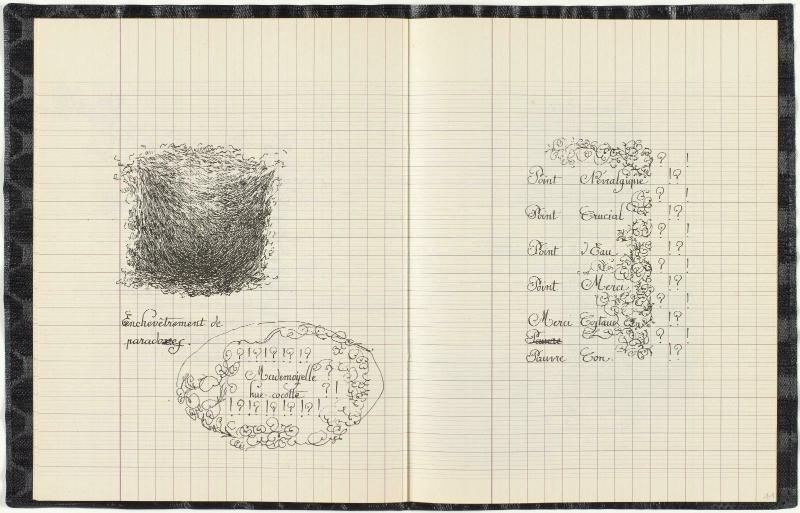 Enchevêtrement de
paradoxes
?!?!?!?!?
Mademoyelle ? ?
hue-cocotte ? !
!?!?!?!?!?!
? !
Point Névralgique !?
? !
Point Crucial !?
? !
Point d'Eau !?
? !
Point Merci !?
? !
Merci !?
? !
Pauvre !?